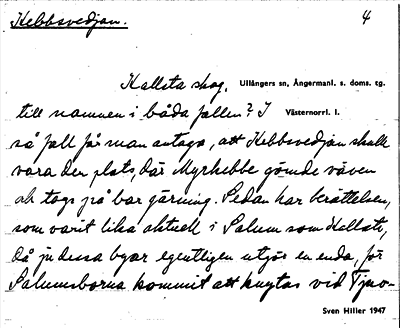 Kebbsvedjan. 4
Kallsta skog, Ullångers sn, Ångermanl. s. doms. tg.
till namnen i båda fallen? I Västernorrl. l.
så fall får man antaga, att Kebbsvedjan skulle
vara den plats, där Myrkebbe gömde väven
och togs på bar gärning. Sedan har berättelsen,
som varit lika aktuell i Salum som Kallsta,
då ju dessa byar egentligen utgör en enda, för
Salumsborna kommit att knytas vid Tjuv-
Sven Hiller 1947